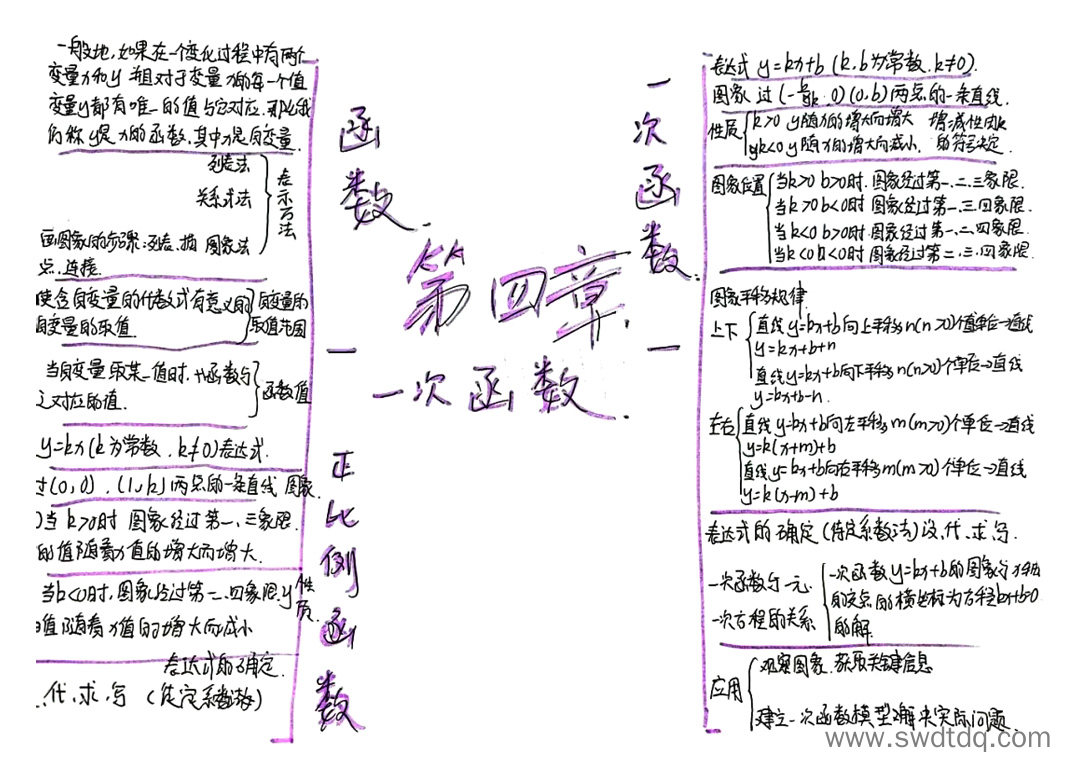 第四章
一次函数
函数
一般地,如果在一个变化过程中有两个
变量x和y 并且对于变量x的每一个值
变量y都有唯一的值与它对应.那么我
们称y是x的函数,其中x是自变量
列表法
关系式法
图象法
表示方法
画图象的步骤:列表、描
点、连接
使含自变量的代数式有意义的
自变量的取值
自变量的
取值范围
当自变量取某一值时,
之对应的值.
函数值
正比例函数
y=kx(k为常数,k≠0)表达式.
(0,0),(1,k)两点的一条直线 图象
当k>0时 图象经过第一、三象限.
的值随着x值的增大而增大.
当k<0时,图象经过第二、四象限,y
值随着x值的增大而减小
性质
表达式的确定
代、求、写 (待定系数法)
一次函数
表达式 y=kx+b (k,b为常数.k≠0).
图象 过(-b/k,0)(0,b)两点的一条直线.
性质
k>0 y随x的增大而增大 增减性由k
k<0 y随x的增大而减小. 的符号决定.
图象位置
当k>0 b>0时.图象经过第一.二.三象限.
当k>0 b<0时 图象经过第一.三.四象限.
当k<0 b>0时 图象经过第一.二.四象限.
当k<0 b<0时 图象经过第二.三.四象限.
图象平移规律.
上下
直线y=kx+b向上平移n(n>0)个单位→直线
y=kx+b+n
直线y=kx+b向下平移n(n>0)个单位→直线
y=kx+b-n.
左右
直线y=kx+b向左平移m(m>0)个单位→直线
y=k(x+m)+b
直线y=kx+b向右平移m(m>0)个单位→直线
y=k(x-m)+b
表达式的确定(待定系数法)设.代.求.写.
一次函数与一元
一次方程的关系
一次函数y=kx+b的图象与x轴
的交点的横坐标为方程kx+b=0
的解.
应用
观察图象.获取关键信息
建立一次函数模型解决实际问题.
www.swdtdq.com